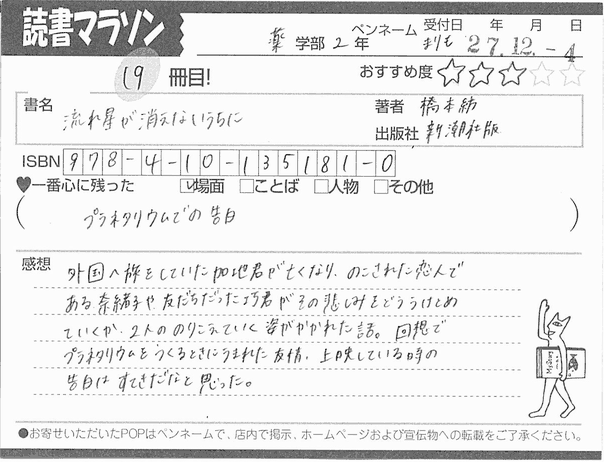 読書マラソン
薬 学部 2 年 ペンネーム まりも 受付日 年 月 日
27.12.-4
19 冊目!
おすすめ度 ★★★☆☆
書名 流れ星が消えないうちに
著者 橋本紡
出版社 新潮社版
ISBN 978-4-10-135181-0
♥一番心に残った ☑場面 □ことば □人物 □その他
( プラネタリウムでの告白 )
感想
外国へ旅をしていた加地君が亡くなり、のこされた恋人で
ある奈緒子や友だちだった巧君がその悲しみをどううけとめ
ていくか、2人ののりこえていく姿がかかれた話。回想で
プラネタリウムをつくるときにうまれた友情、上映している時の
告白はすてきだなと思った。
●お寄せいただいたPOPはペンネームで、店内で掲示、ホームページおよび宣伝物への転載をご了承ください。